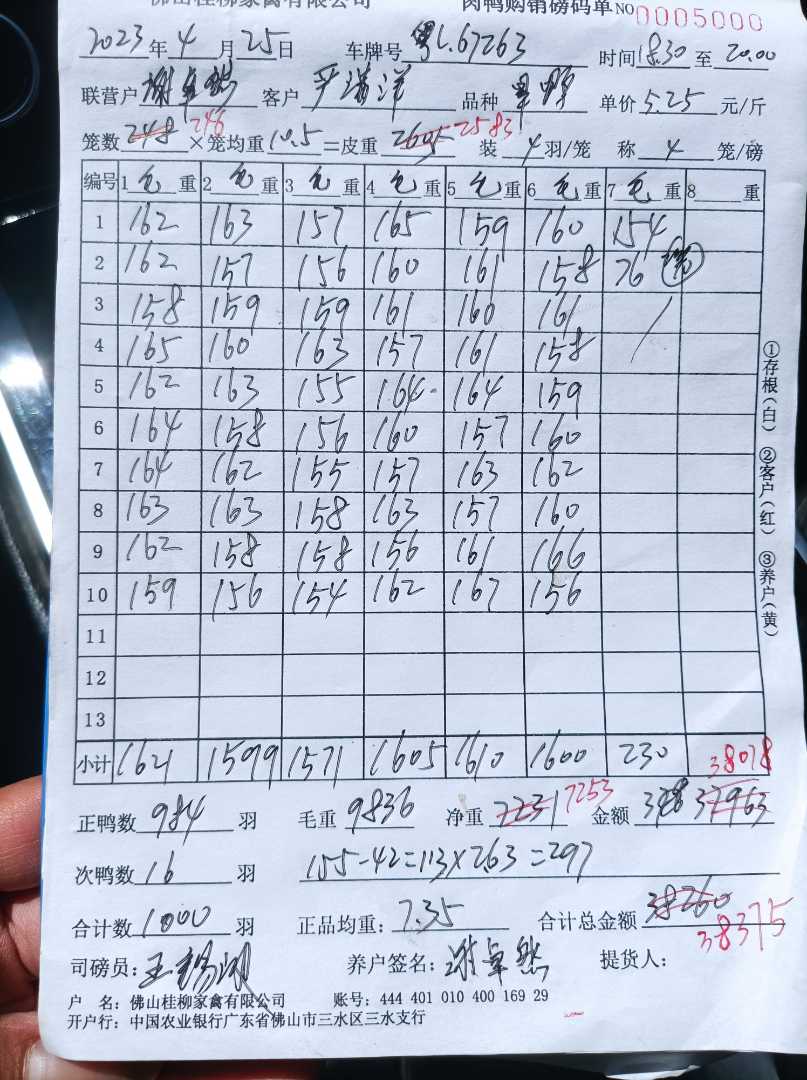 佛山桂柳家禽有限公司 肉鸭购销磅码单 NO 0005000
2023年4月25日 车牌号 粤L.67263 时间18.30至20.00
联营户 谢卓然 客户 品种 单价 5.25 元/斤
笼数 248 246 ×笼均重 10.5 =皮重 2605 2583 装 4 羽/笼 称 4 笼/磅
编号 1 毛 重 2 毛 重 3 毛 重 4 毛 重 5 毛 重 6 毛 重 7 毛 重 8 重
1 162 163 157 165 159 160 154
2 162 157 156 160 161 158 76
3 158 159 159 161 160 161 /
4 165 160 163 157 161 158
5 162 163 155 164 164 159
6 164 158 156 160 157 160
7 164 162 155 157 163 162
8 163 163 158 163 157 160
9 162 158 158 156 161 166
10 159 156 154 162 167 156
11
12
13
小计 1621 1599 1571 1605 1610 1600 230 38078
正鸭数 984 羽 毛重 9836 净重 7231 7253 金额 37963
次鸭数 16 羽 155-42=113×2.63=297
合计数 1000 羽 正品均重: 7.35 合计总金额 38260 38375
司磅员: 王锡湖 养户签名: 谢卓然 提货人:
户 名: 佛山桂柳家禽有限公司 账号: 444 401 010 400 169 29
开户行: 中国农业银行广东省佛山市三水区三水支行
①存根(白) ②客户(红) ③养户(黄)